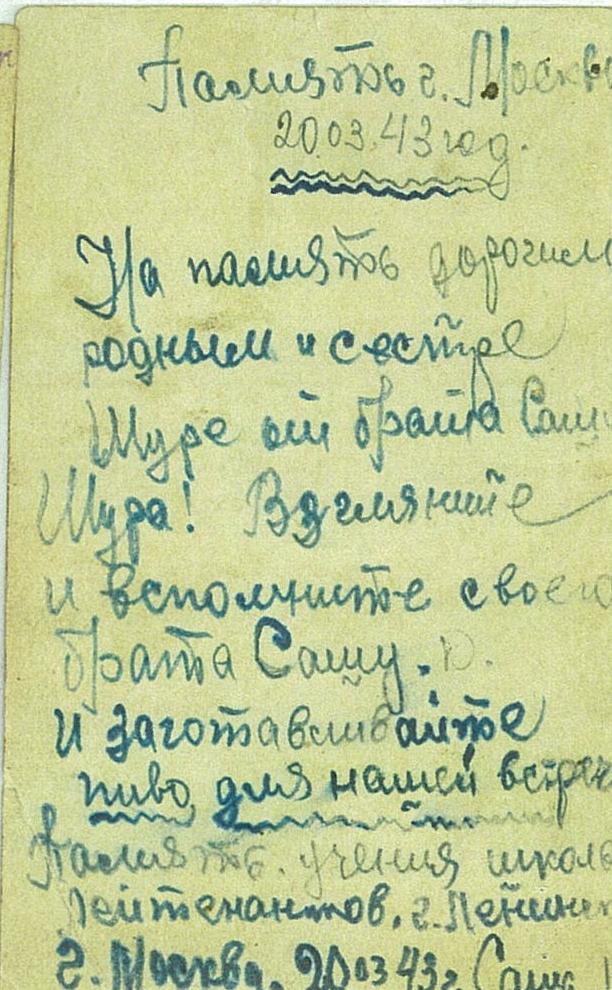 Память г. Москв
20.03.43 год.
На память дорогим
родным и сестре
Шуре от брата Саши
Шура! Взгляните
и вспомните своего
брата Сашу.
И заготавливайте
пиво для нашей встреч
Память. учения школ
лейтенантов. г. Ленин
г. Москва. 20 03 43 г. Саш